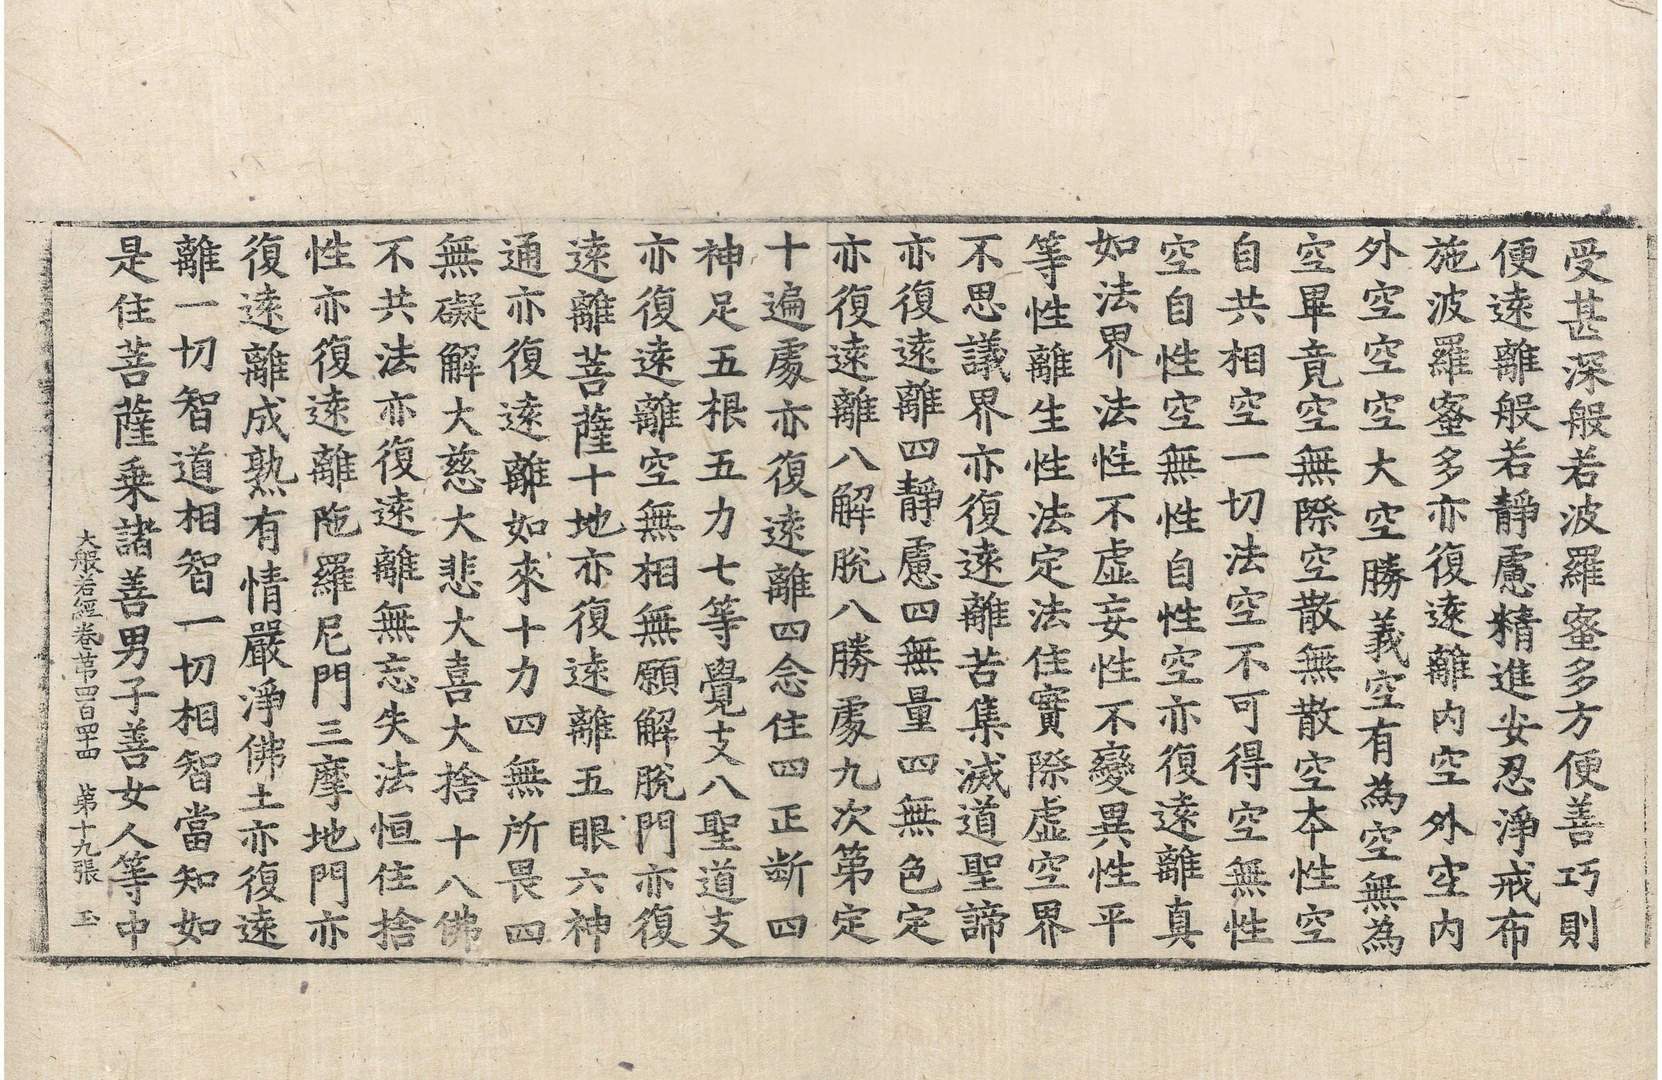 受甚深般若波羅蜜多方便善巧則
便遠離般若靜慮精進安忍淨戒布
施波羅蜜多亦復遠離內空外空內
外空空空大空勝義空有為空無為
空畢竟空無際空散無散空本性空
自共相空一切法空不可得空無性
空自性空無性自性空亦復遠離真
如法界法性不虛妄性不變異性平
等性離生性法定法住實際虛空界
不思議界亦復遠離苦集滅道聖諦
亦復遠離四靜慮四無量四無色定
亦復遠離八解脫八勝處九次第定
十遍處亦復遠離四念住四正斷四
神足五根五力七等覺支八聖道支
亦復遠離空無相無願解脫門亦復
遠離菩薩十地亦復遠離五眼六神
通亦復遠離如來十力四無所畏四
無礙解大慈大悲大喜大捨十八佛
不共法亦復遠離無忘失法恒住捨
性亦復遠離陁羅尼門三摩地門亦
復遠離成熟有情嚴淨佛土亦復遠
離一切智道相智一切相智當知如
是住菩薩乘諸善男子善女人等中
大般若經卷苐四百四十四 第十九張 玉